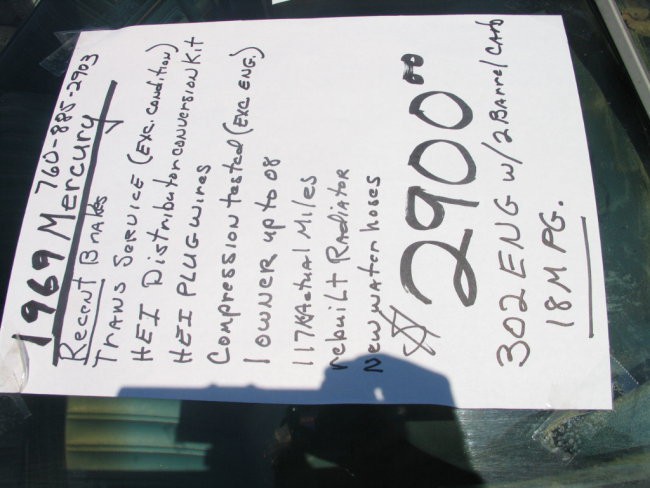 760-885-2903
1969 Mercury
Recent Brakes
Trans Service (Exc. condition)
HEI Distributor conversion Kit
HEI PLUG wires
Compression tested (Exc. ENG.)
1 owner up to 08
117K Actual Miles
rebuilt Radiator
New water hoses
$2900.00
302 ENG w/2 Barrel Carb
18 M PG.